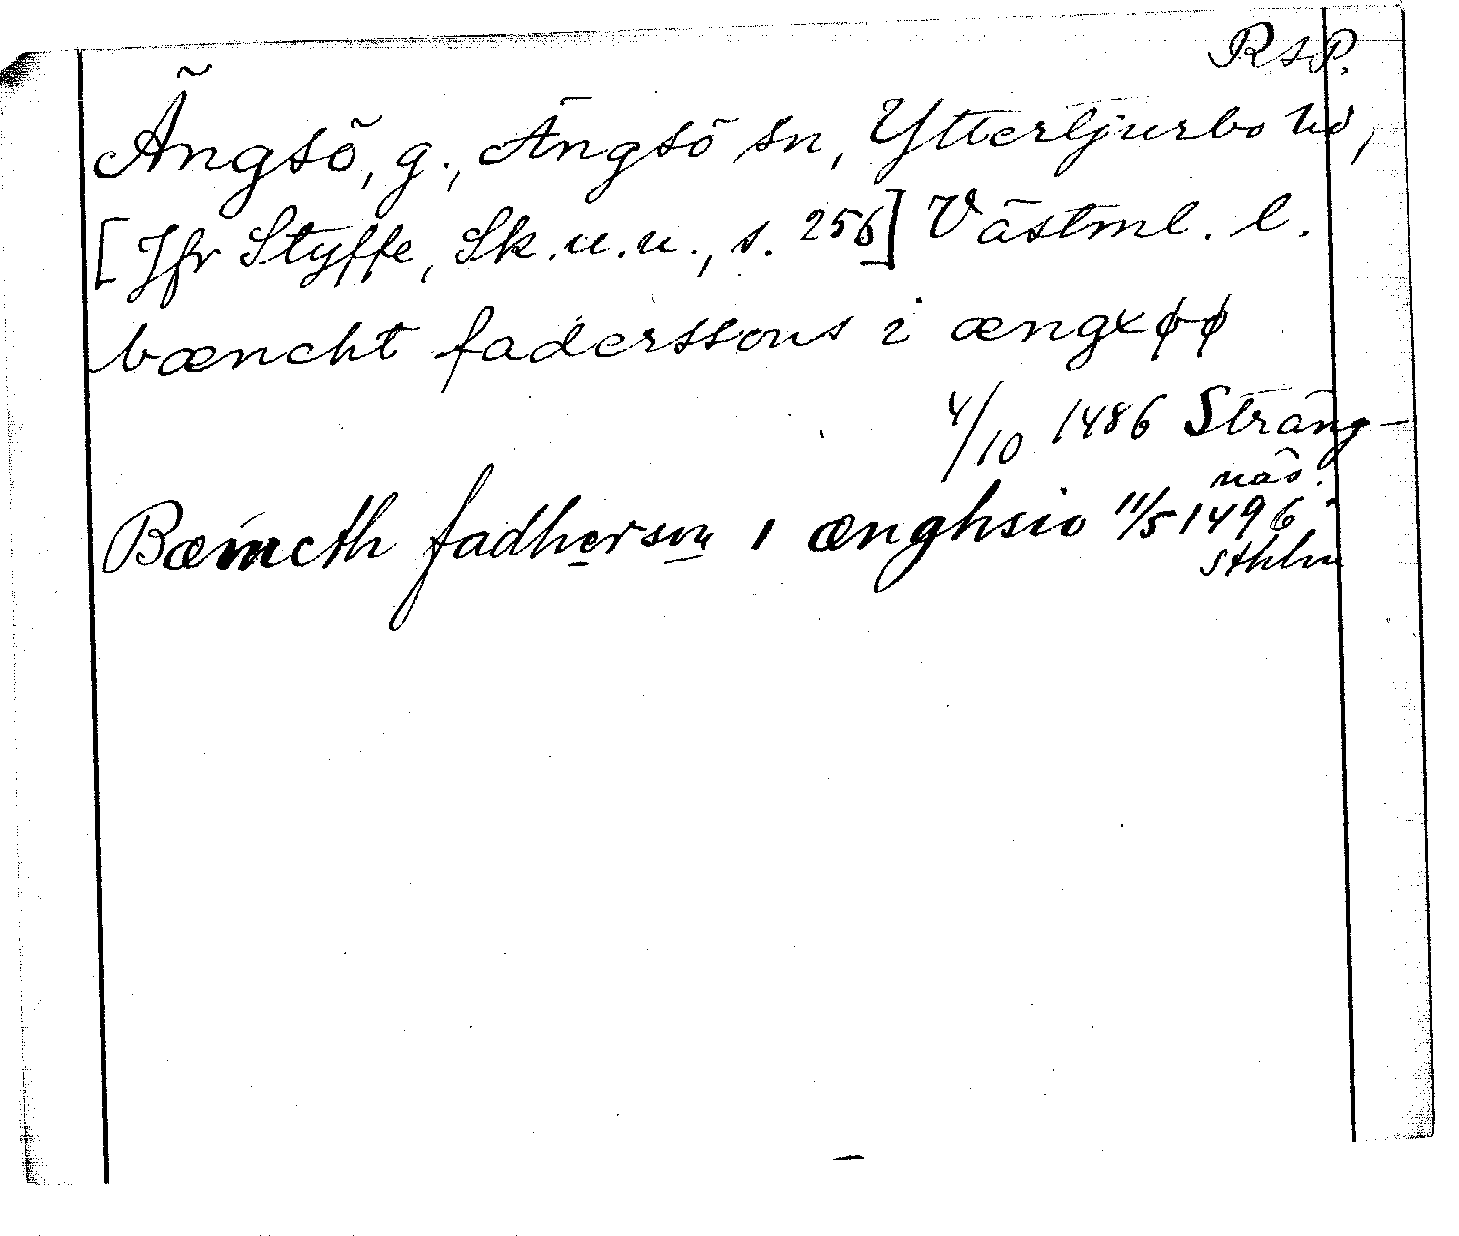 RSP.
Ängsö, g., Ängsö sn, Ytterljurbo hd,
[Jfr Styffe, Sk. u. u., s. 256] Västml. l.
bæncht faderssons i ængxøø
4/10 1486 Sträng-
näs.
Bæincth fadherson i ænghsio 11/5 1496,
Sthlm